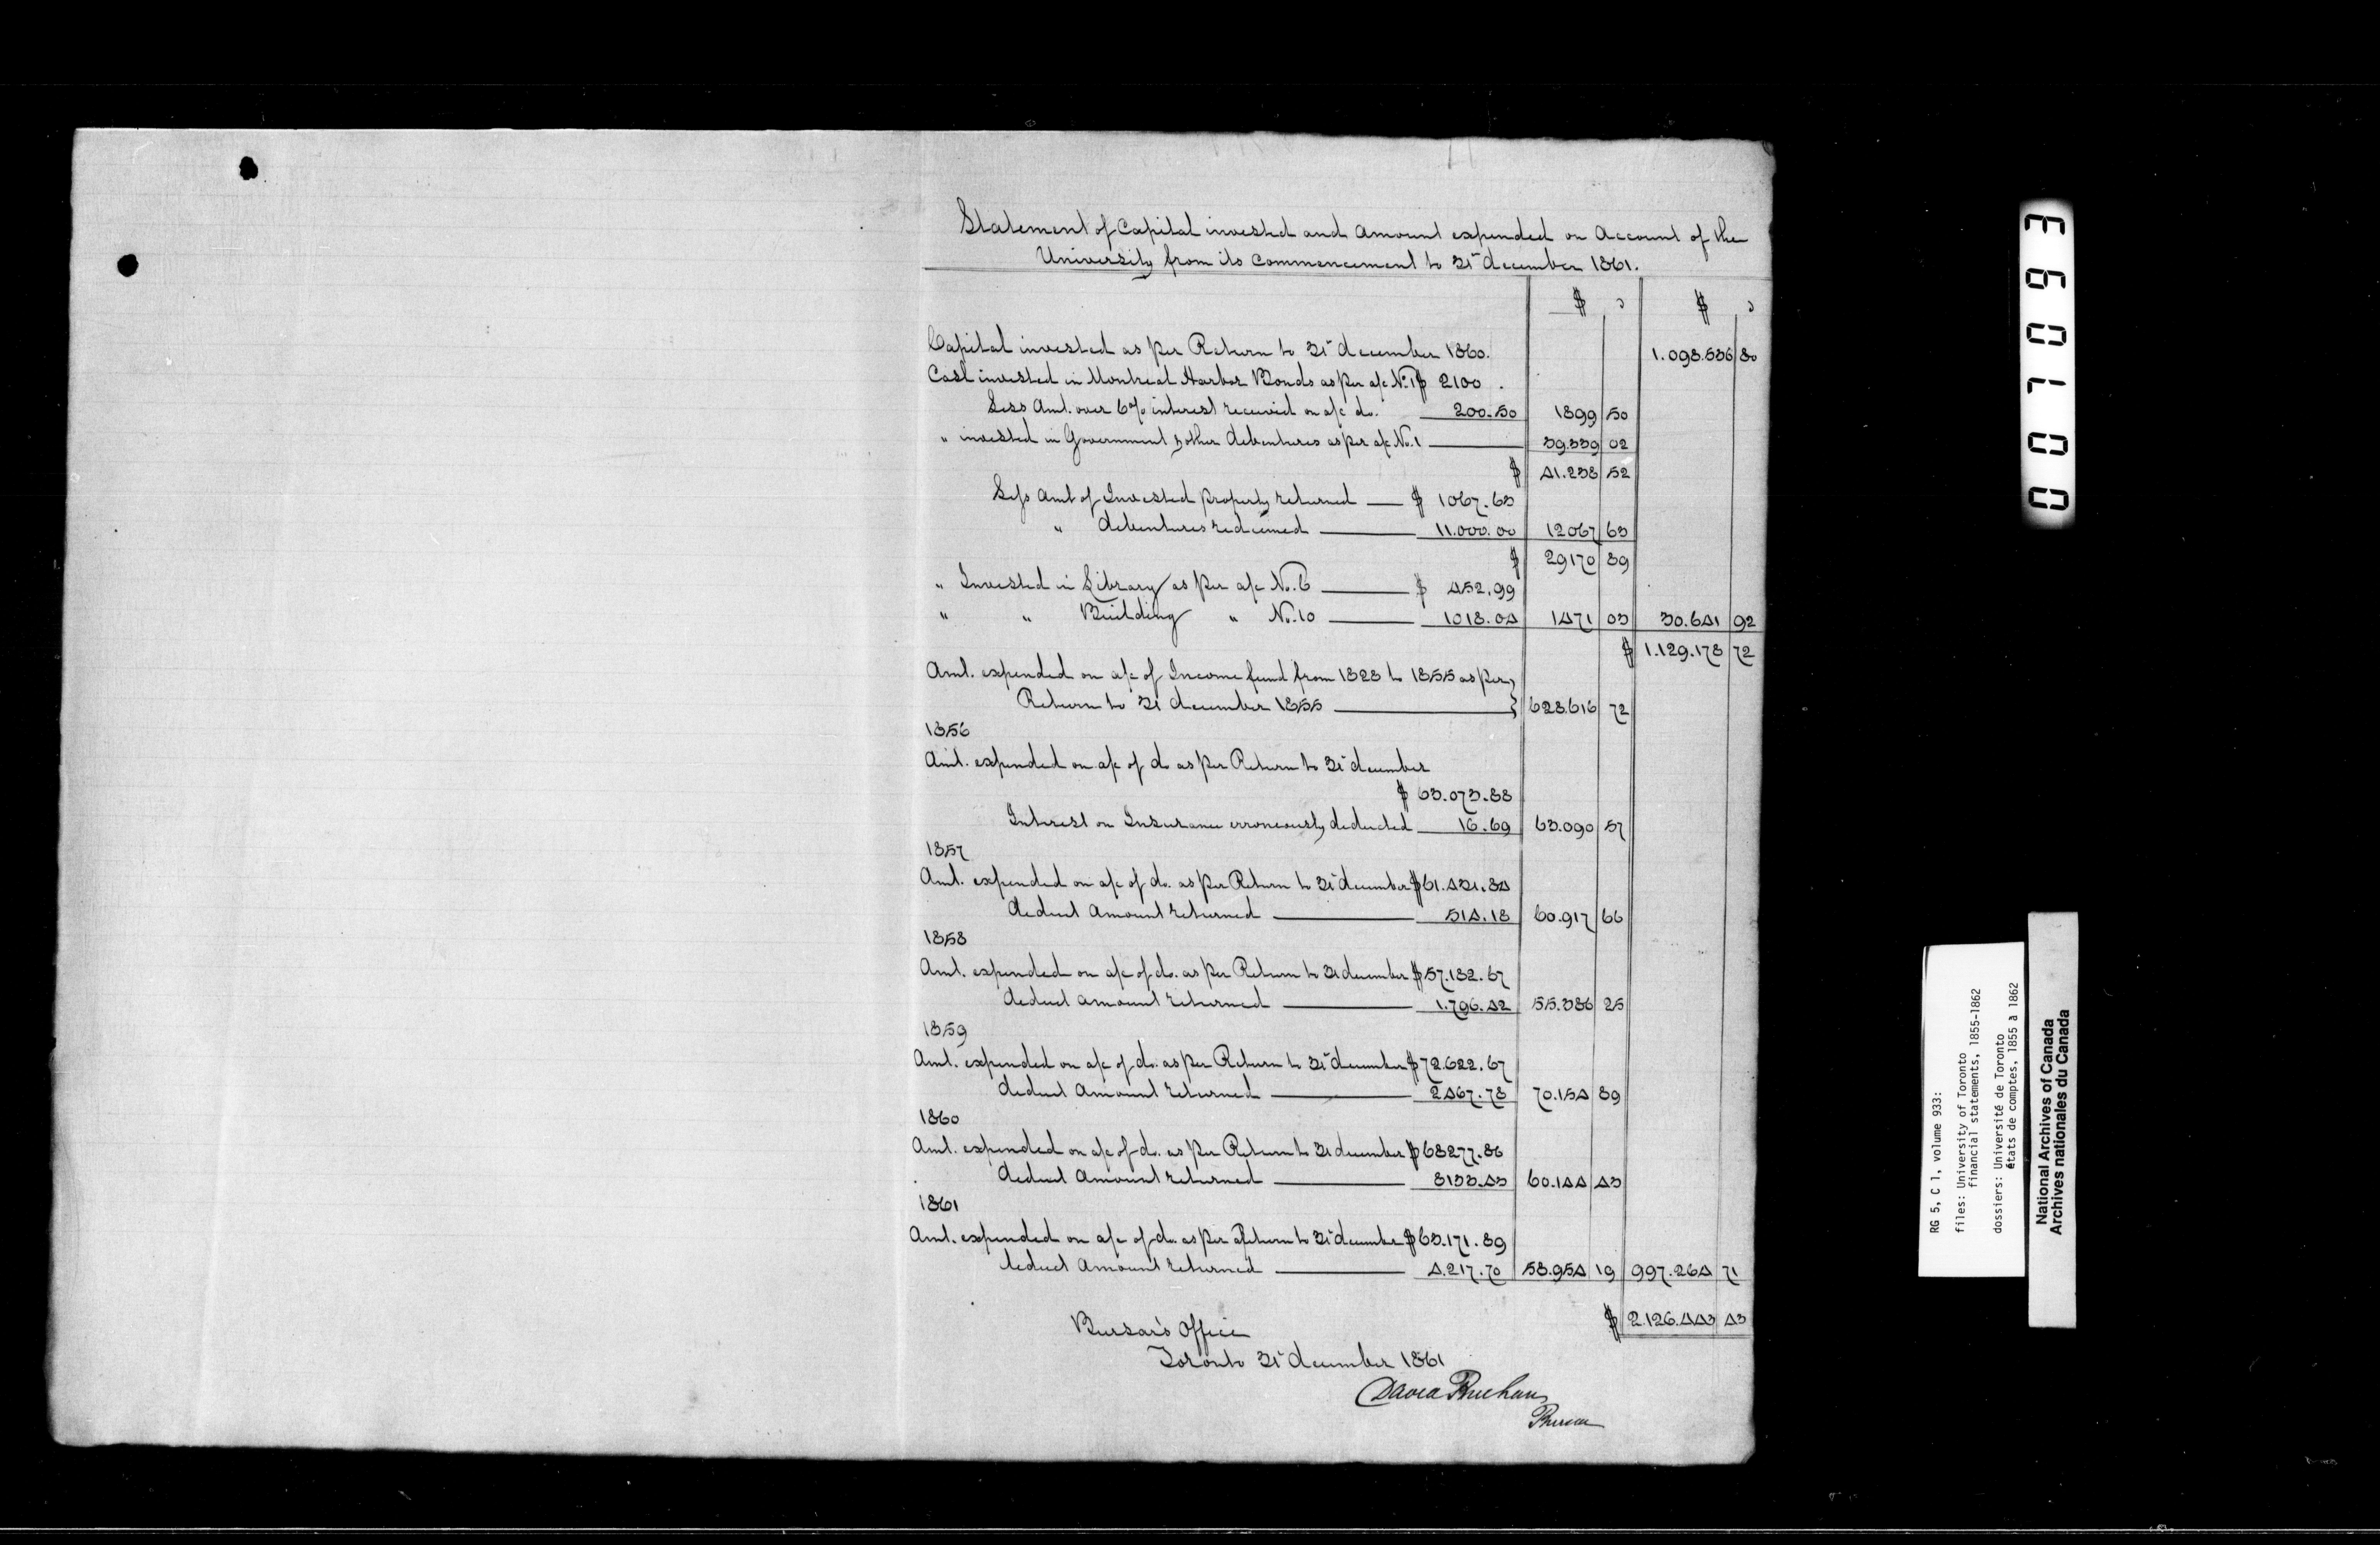 Statement of Capital invested and Amount expended on Account of the
University from its Commencement to 31st december 1861.
$ c $ c
Capital invested as per Return to 31st december 1860. 1.098.536 80
Cash invested in Montreal Harbor Bonds as per a/c No.1 $ 2100 .
Less Amt. over 6% interest received on a/c do. 200.50 1899 50
" invested in Government & other debentures as per a/c No.1 39.339 02
$ 41.238 52
Less Amt of Invested property returned $ 1067.63
" debentures redeemed 11.000.00 12067 63
$ 29170 89
" Invested in Library as per a/c No.6 $ 452.99
" " Building " No.10 1018.04 1471 03 30.641 92
$ 1.129.178 72
Amt. expended on a/c of Income fund from 1828 to 1855 as per
Return to 31 december 1855 } 628.616 72
1856
Amt. expended on a/c of do as per Return to 31st december
$ 63.073.88
Interest on Insurance erroneously deducted 16.69 63.090 57
1857
Amt. expended on a/c of do. as per Return to 31st december $61.431.84
deduct Amount returned 514.18 60.917 66
1858
Amt. expended on a/c of do. as per Return to 31 december $57.182.67
deduct amount returned 1.796.42 55.386 25
1859
Amt. expended on a/c of do. as per Return to 31st december $72.622.67
deduct Amount returned 2467.78 70.154 89
1860
Amt. expended on a/c of do. as per Return to 31 december $68277.86
deduct Amount returned 8133.43 60.144 43
1861
Amt. expended on a/c of do. as per Return to 31st december $63.171.89
deduct Amount returned 4.217.70 58.954 19 997.264 71
$ 2.126.443 43
Bursar's Office
Toronto 31st december 1861
David Buchan
Bursar
0 0 7 0 9 3
RG 5, C 1, volume 933:
files: University of Toronto
financial statements, 1855-1862
dossiers: Université de Toronto
états de comptes, 1855 à 1862
National Archives of Canada
Archives nationales du Canada